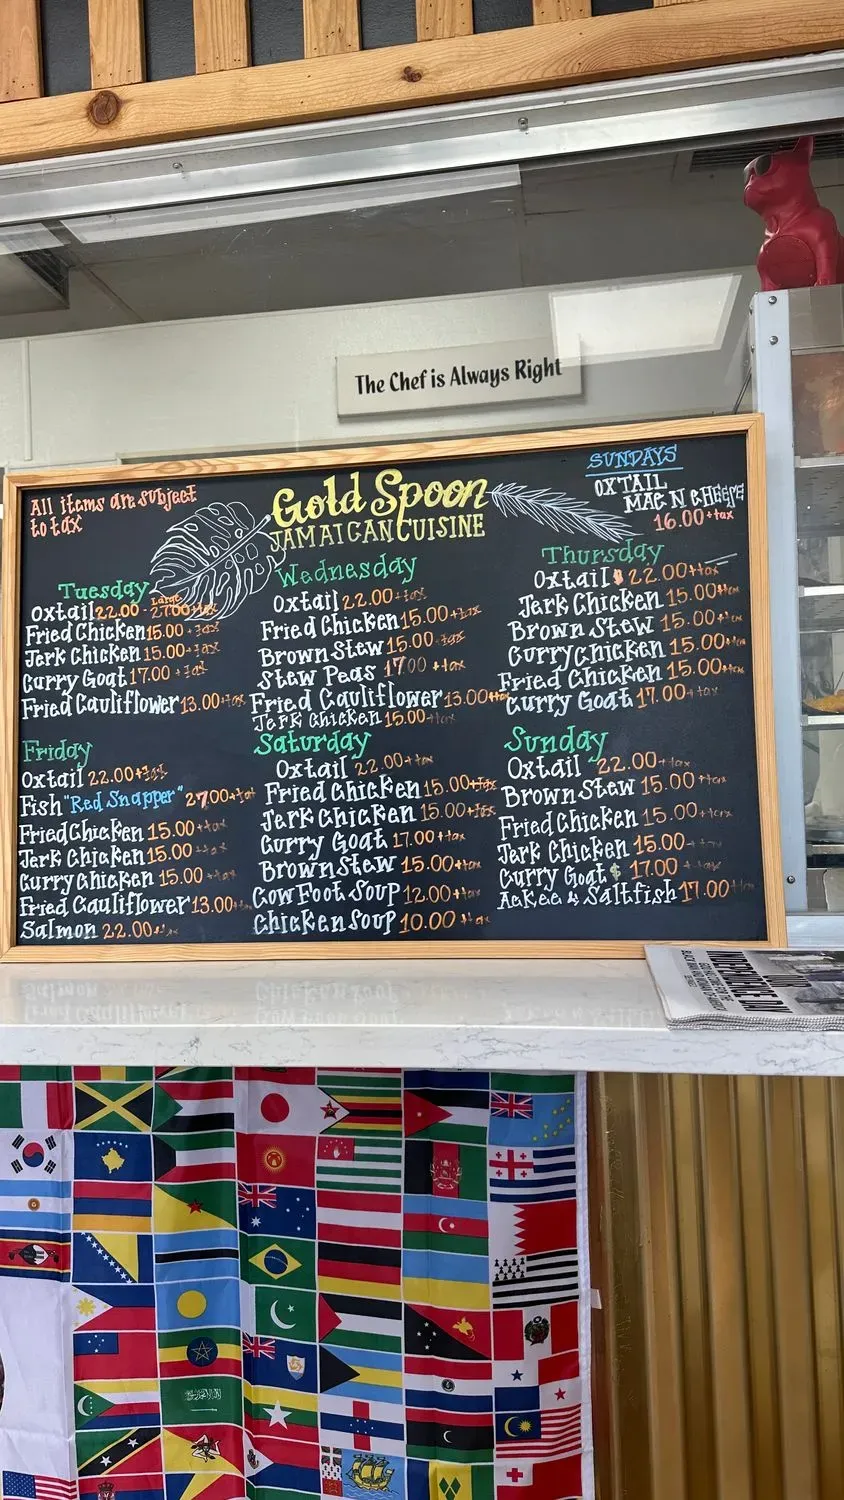 The Chef is Always Right
All items are subject
to tax
Gold Spoon
JAMAICAN CUISINE
SUNDAYS
OXTAIL
MAC N CHEESE
16.00+tax
Tuesday
Large
Oxtail 22.00 - 27.00+tax
Fried Chicken 15.00+tax
Jerk Chicken 15.00+tax
Curry Goat 17.00+tax
Fried Cauliflower 13.00+tax
Wednesday
Oxtail 22.00+tax
Fried Chicken 15.00+tax
Brown Stew 15.00+tax
Stew Peas 17.00+tax
Fried Cauliflower 13.00+tax
Jerk Chicken 15.00+tax
Thursday
Oxtail 22.00+tax
Jerk Chicken 15.00+tax
Brown Stew 15.00+tax
Curry Chicken 15.00+tax
Fried Chicken 15.00+tax
Curry Goat 17.00+tax
Friday
Oxtail 22.00+tax
Fish "Red Snapper" 27.00+tax
Fried Chicken 15.00+tax
Jerk Chicken 15.00+tax
Curry Chicken 15.00+tax
Fried Cauliflower 13.00+tax
Salmon 22.00+tax
Saturday
Oxtail 22.00+tax
Fried Chicken 15.00+tax
Jerk Chicken 15.00+tax
Curry Goat 17.00+tax
Brown Stew 15.00+tax
Cow Foot Soup 12.00+tax
Chicken Soup 10.00+tax
Sunday
Oxtail 22.00+tax
Brown Stew 15.00+tax
Fried Chicken 15.00+tax
Jerk Chicken 15.00+tax
Curry Goat $ 17.00+tax
Ackee & Saltfish 17.00+tax